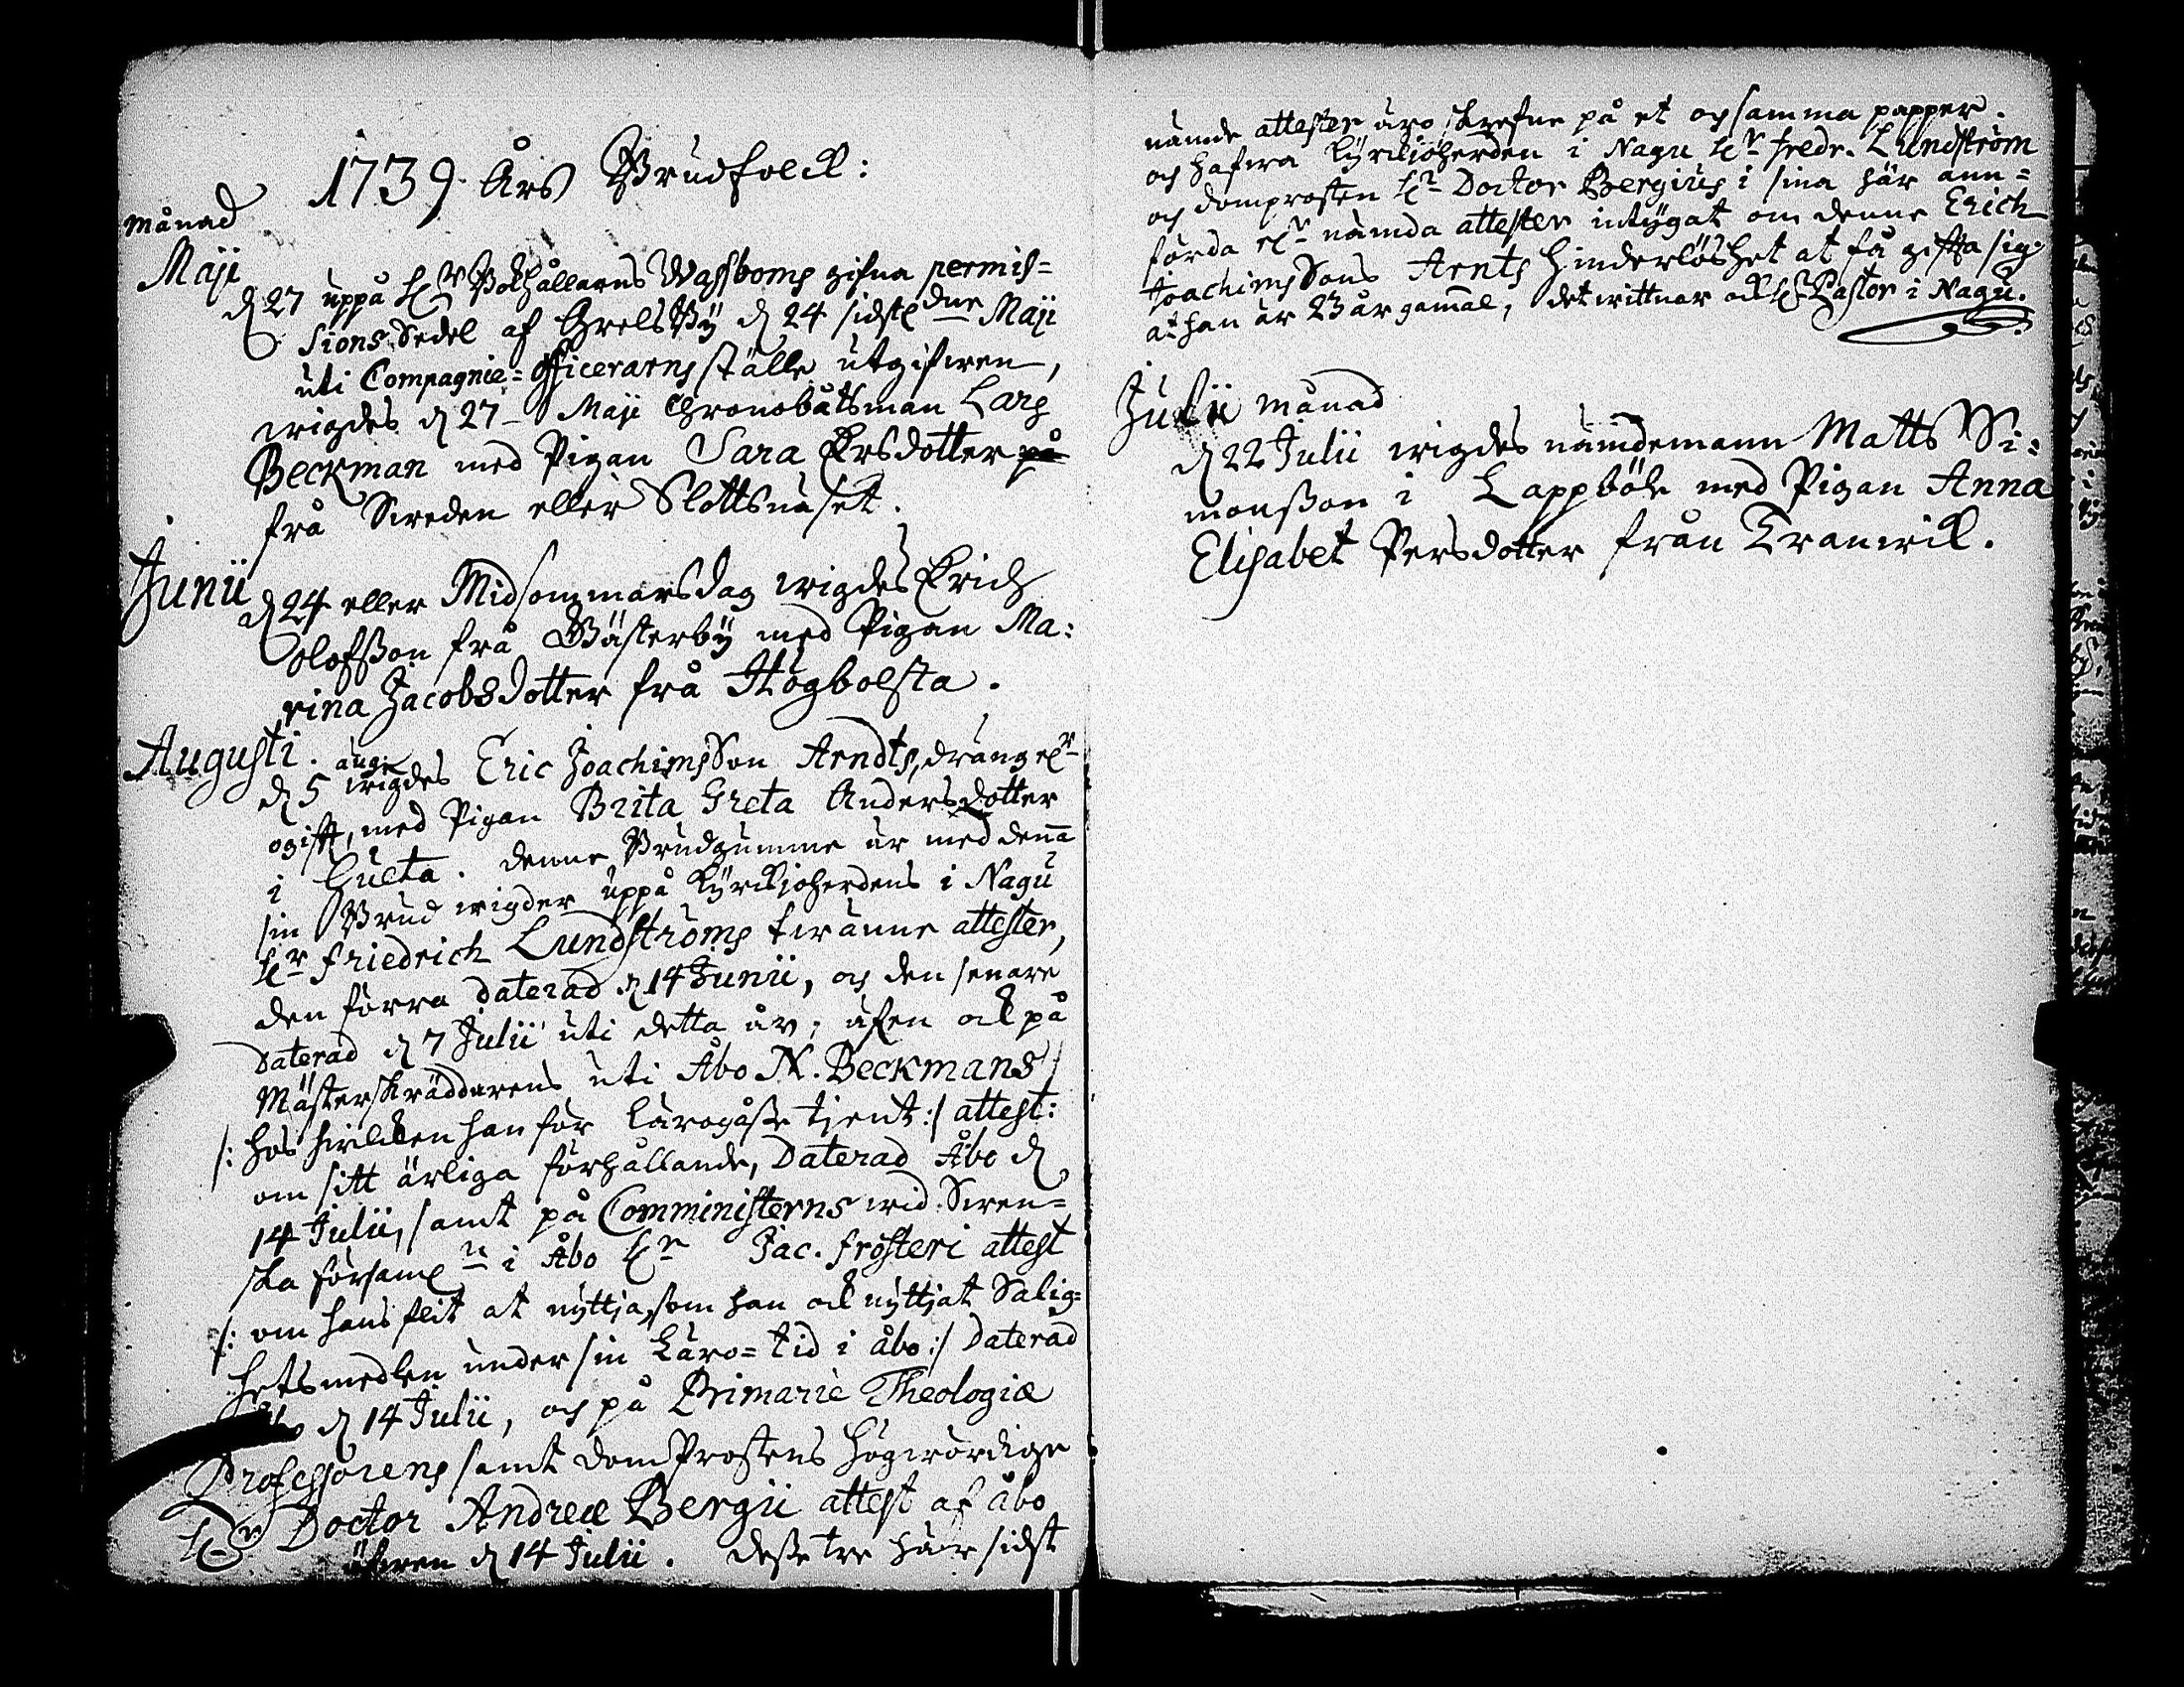 1739 Års Brudfolck:
månad
Maji
d 27 uppå Hr Bokhållarens Wassboms gifna permis=
sions Sedel af Grelsby d 24 sidstl. Maji
uti Compagnie=officerarens ställe utgifwen,
wigdes d 27 Maji Chronobåtsman Lars
Beckman med Pigan Sara Ersdotter på
frå Sweden eller Slottsnäset.
Junii
d 24 eller Midsommarsdag wigdes Erich
Olofsson frå Wästerby med Pigan Ma:
rina Jacobsdotter frå Högbolsta.
Augusti.
d 5 aug: wigdes Eric JoachimsSon Arndts, dräng
ogift, med Pigan Brita Greta Andersdotter
i Gulta. denne Brudgumme är med denna
sin Brud wigder uppå Kyrckjoherdens i Nagu
Hr Friedrich Lundströms twänne attester,
den förra Daterad d 14 Junii, och den senare
Daterad d 7 Julii uti detta år; äfen ock på
Mästerskräddarens uti Åbo N. Beckmans
/: hos hwilcken han för Lärogåsse tjent :/ attest:
om sitt ärliga förhållande, Daterad Åbo d
14 Julii, samt på Comministerns wid Swen=
ska församln i Åbo Hr Jac. Frosteri attest
/: om hans flit at nyttja, som han ock nyttjat Salig=
hetsmedlen under sin Läro=tid i åbo :/ Daterad
d 14 Julii, och på Primarie Theologiæ
Professorens samt DomProstens Högwördige
Hr Doctor Andreæ Bergii attest af åbo
äfwen d 14 Julii. desse tre här sidst
nämde attester äro skrefne på et och samma papper.
och hafwa Kyrckjoherden i Nagu Hr fredr. Lundström
och domprosten Hr Doctor Bergius i sina här ann=
förda nämda attester intygat om denne Erich
JoachimsSons Arnts hinderlöshet at få giffta sig;
at han är 23 år gammal, det wittnar ock Hr Pastor i Nagu.
Julii månad
d 22 Julii wigdes nämdemann Matts Si:
monsson i Lappböle med Pigan Anna
Elisabet Persdotter från Tranwik.